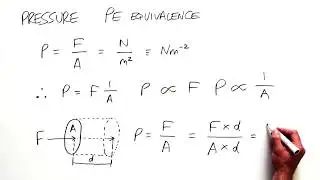 PRESSURE PE EQUIVALENCE
P = F/A = N/m² = Nm⁻²
∴ P = F 1/A P ∝ F P ∝ 1/A
F A d P = F/A = F × d/A × d =